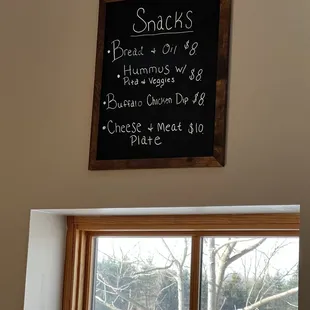 Snacks
• Bread + Oil $8
• Hummus w/ $8
Pita + Veggies
• Buffalo Chicken Dip $8
• Cheese + Meat $10
Plate